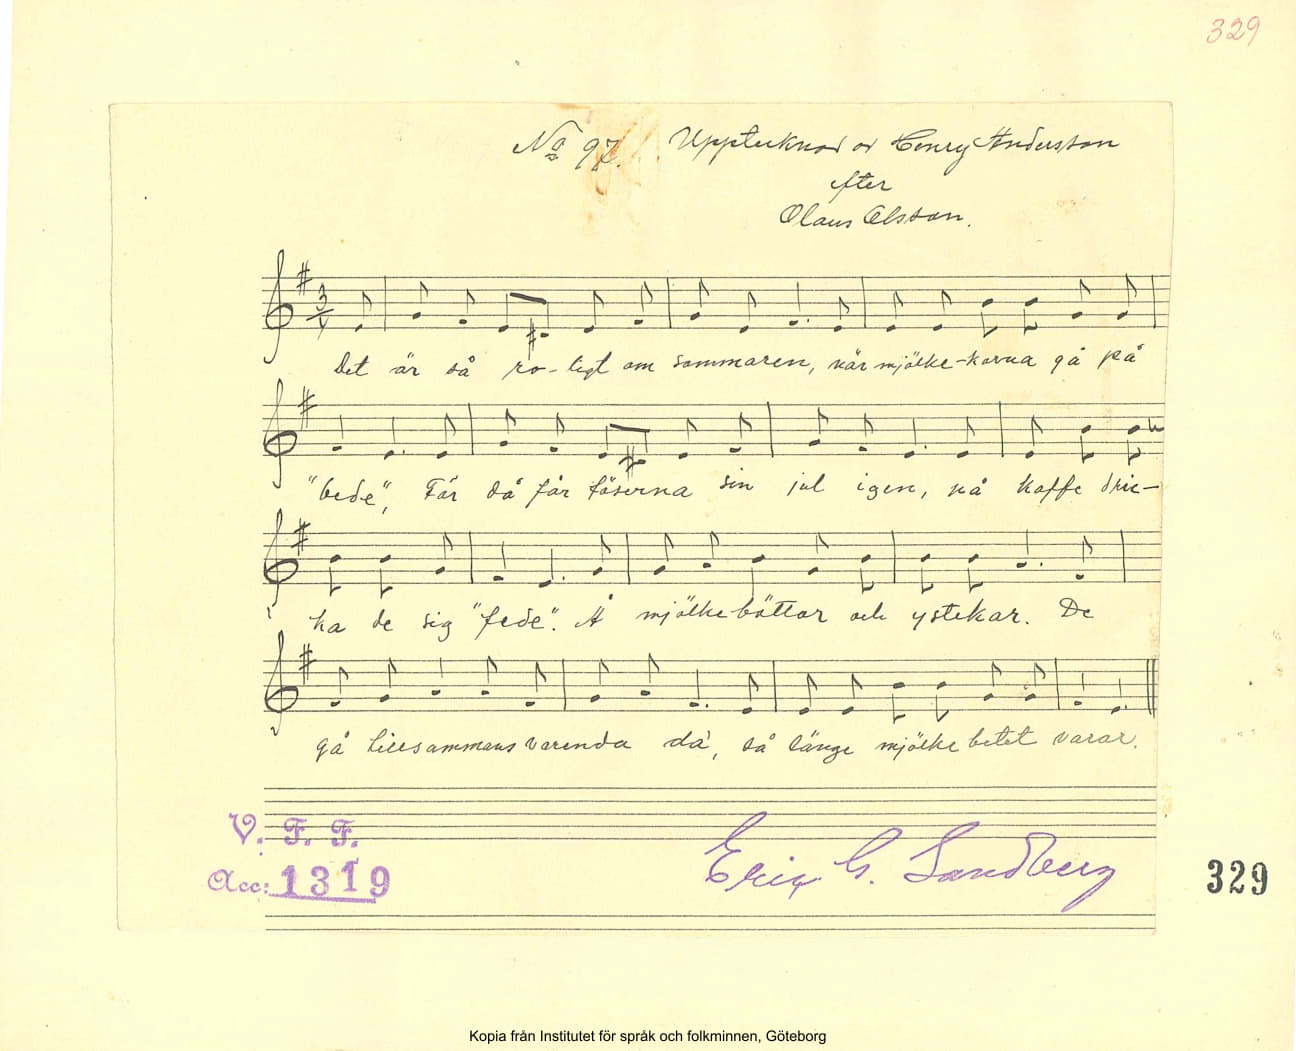 329
No 97. Upptecknad av Henry Andersson
efter
Olaus Olsson.
Det är så ro-ligt om sommaren, när mjölke-korna gå på
"bede", För då får töserna sin jul igen, nå kaffe dric-
ka de sig "fede". Å mjölkeböttor och ystekar. De
gå tillsammans varenda da', så länge mjölkebetet varar.
V. F. F.
Acc: 1319
Eric G. Sandberg
329
Kopia från Institutet för språk och folkminnen, Göteborg